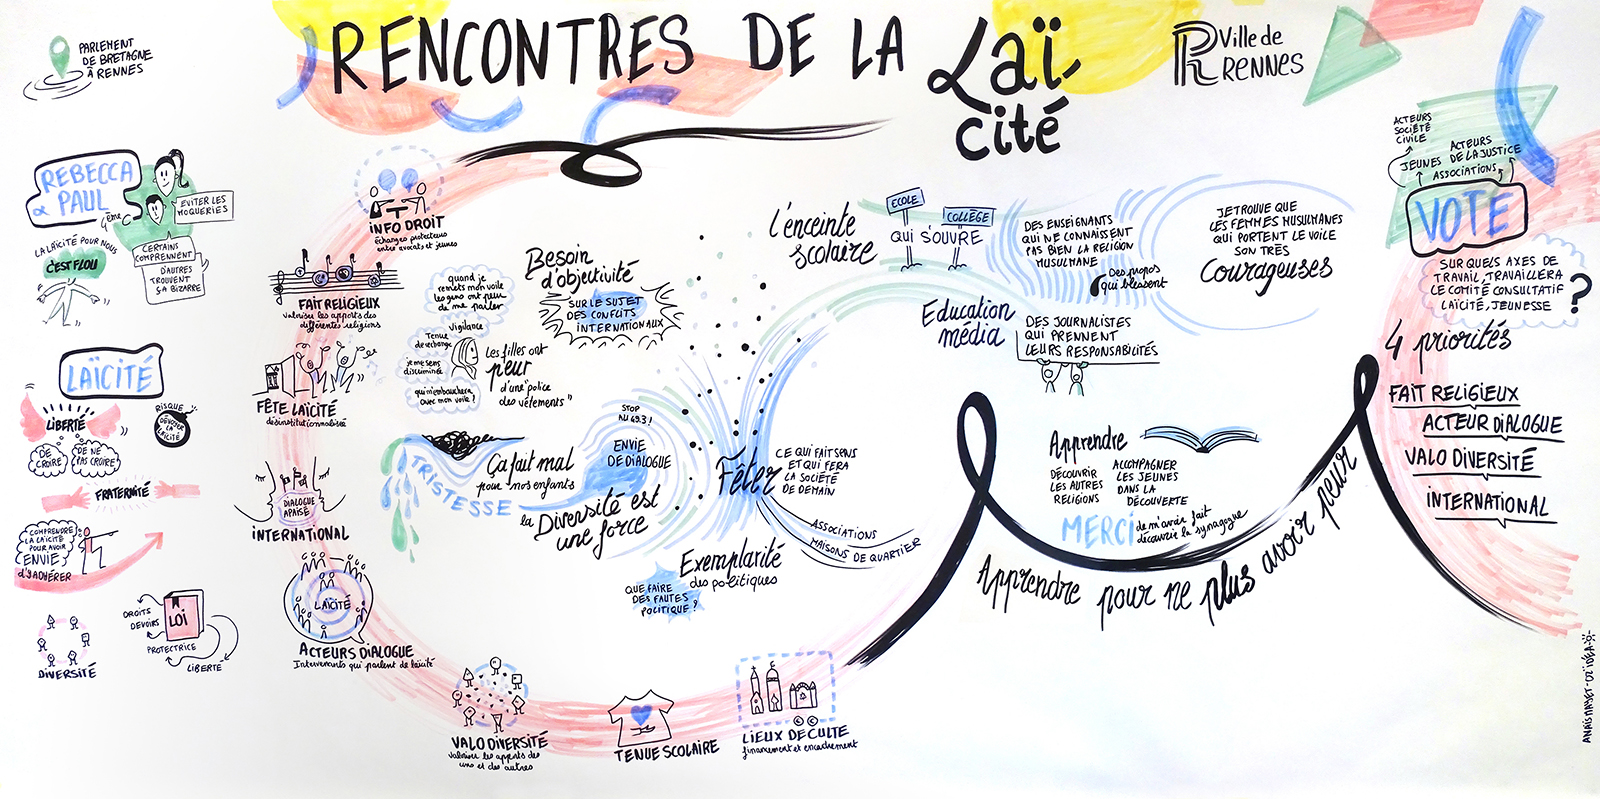 RENCONTRES DE LA Laï-
cité
Ville de
RENNES
PARLEMENT
DE BRETAGNE
À RENNES
REBECCA
& PAUL
4ème
EVITER LES
MOQUERIES
LA LAÏCITÉ POUR NOUS
C'EST FLOU
CERTAINS
COMPRENNENT
D'AUTRES
TROUVENT
ÇA BIZARRE
LAÏCITÉ
LIBERTÉ
DE
CROIRE
DE NE
PAS CROIRE
RISQUE
DÉVOYER
LA
LAÏCITÉ
FRATERNITÉ
COMPRENDRE
LA LAÏCITÉ
POUR AVOIR
ENVIE
D'Y ADHÉRER
DIVERSITÉ
DROITS
DEVOIRS
PROTECTRICE
LOI
LIBERTÉ
INFO DROIT
échanges protecteurs
entre avocats et jeunes
FAIT RELIGIEUX
valoriser les apports des
différentes religions
FÊTE LAÏCITÉ
désinstitutionnalisée
DIALOGUE
APAISÉ
INTERNATIONAL
LAÏCITÉ
ACTEURS DIALOGUE
Intervenants qui parlent de laïcité
VALO DIVERSITÉ
valoriser les apports des
uns et des autres
TENUE SCOLAIRE
LIEUX DE CULTE
financement et encadrement
quand je
remets mon voile
les gens ont peur
de me parler
Vigilance
Tenue
de rechange
je me sens
discriminée
qui m'embauchera
avec mon voile ?
Les filles ont
peur
d'une "police
des vêtements"
Besoin
d'objectivité
SUR LE SUJET
DES CONFLITS
INTERNATIONAUX
TRISTESSE
Ça fait mal
pour nos enfants
STOP
AU 49.3 !
ENVIE
DE DIALOGUE
la Diversité est
une force
Fêter
CE QUI FAIT SENS
ET QUI FERA
LA SOCIÉTÉ
DE DEMAIN
ASSOCIATIONS
MAISONS DE QUARTIER
Exemplarité
des politiques
QUE FAIRE
DES FAUTES
POLITIQUE ?
l'enceinte
scolaire
ECOLE
COLLÈGE
QUI S'OUVRE
DES ENSEIGNANTS
QUI NE CONNAISSENT
PAS BIEN LA RELIGION
MUSULMANE
Des propos
qui blessent
JE TROUVE QUE
LES FEMMES MUSULMANES
QUI PORTENT LE VOILE
SON TRÈS
Courageuses
Education
média
DES JOURNALISTES
QUI PRENNENT
LEURS RESPONSABILITÉS
Apprendre
DÉCOUVRIR
LES AUTRES
RELIGIONS
ACCOMPAGNER
LES JEUNES
DANS LA
DÉCOUVERTE
MERCI de m'avoir fait
découvrir la synagogue
Apprendre pour ne plus avoir peur
ACTEURS
SOCIÉTÉ
CIVILE
JEUNES
ACTEURS
DE LA JUSTICE
ASSOCIATIONS
VOTE
SUR QUELS AXES DE
TRAVAIL, TRAVAILLERA
LE COMITÉ CONSULTATIF
LAÏCITÉ, JEUNESSE
?
4 priorités
FAIT RELIGIEUX
ACTEUR DIALOGUE
VALO DIVERSITÉ
INTERNATIONAL